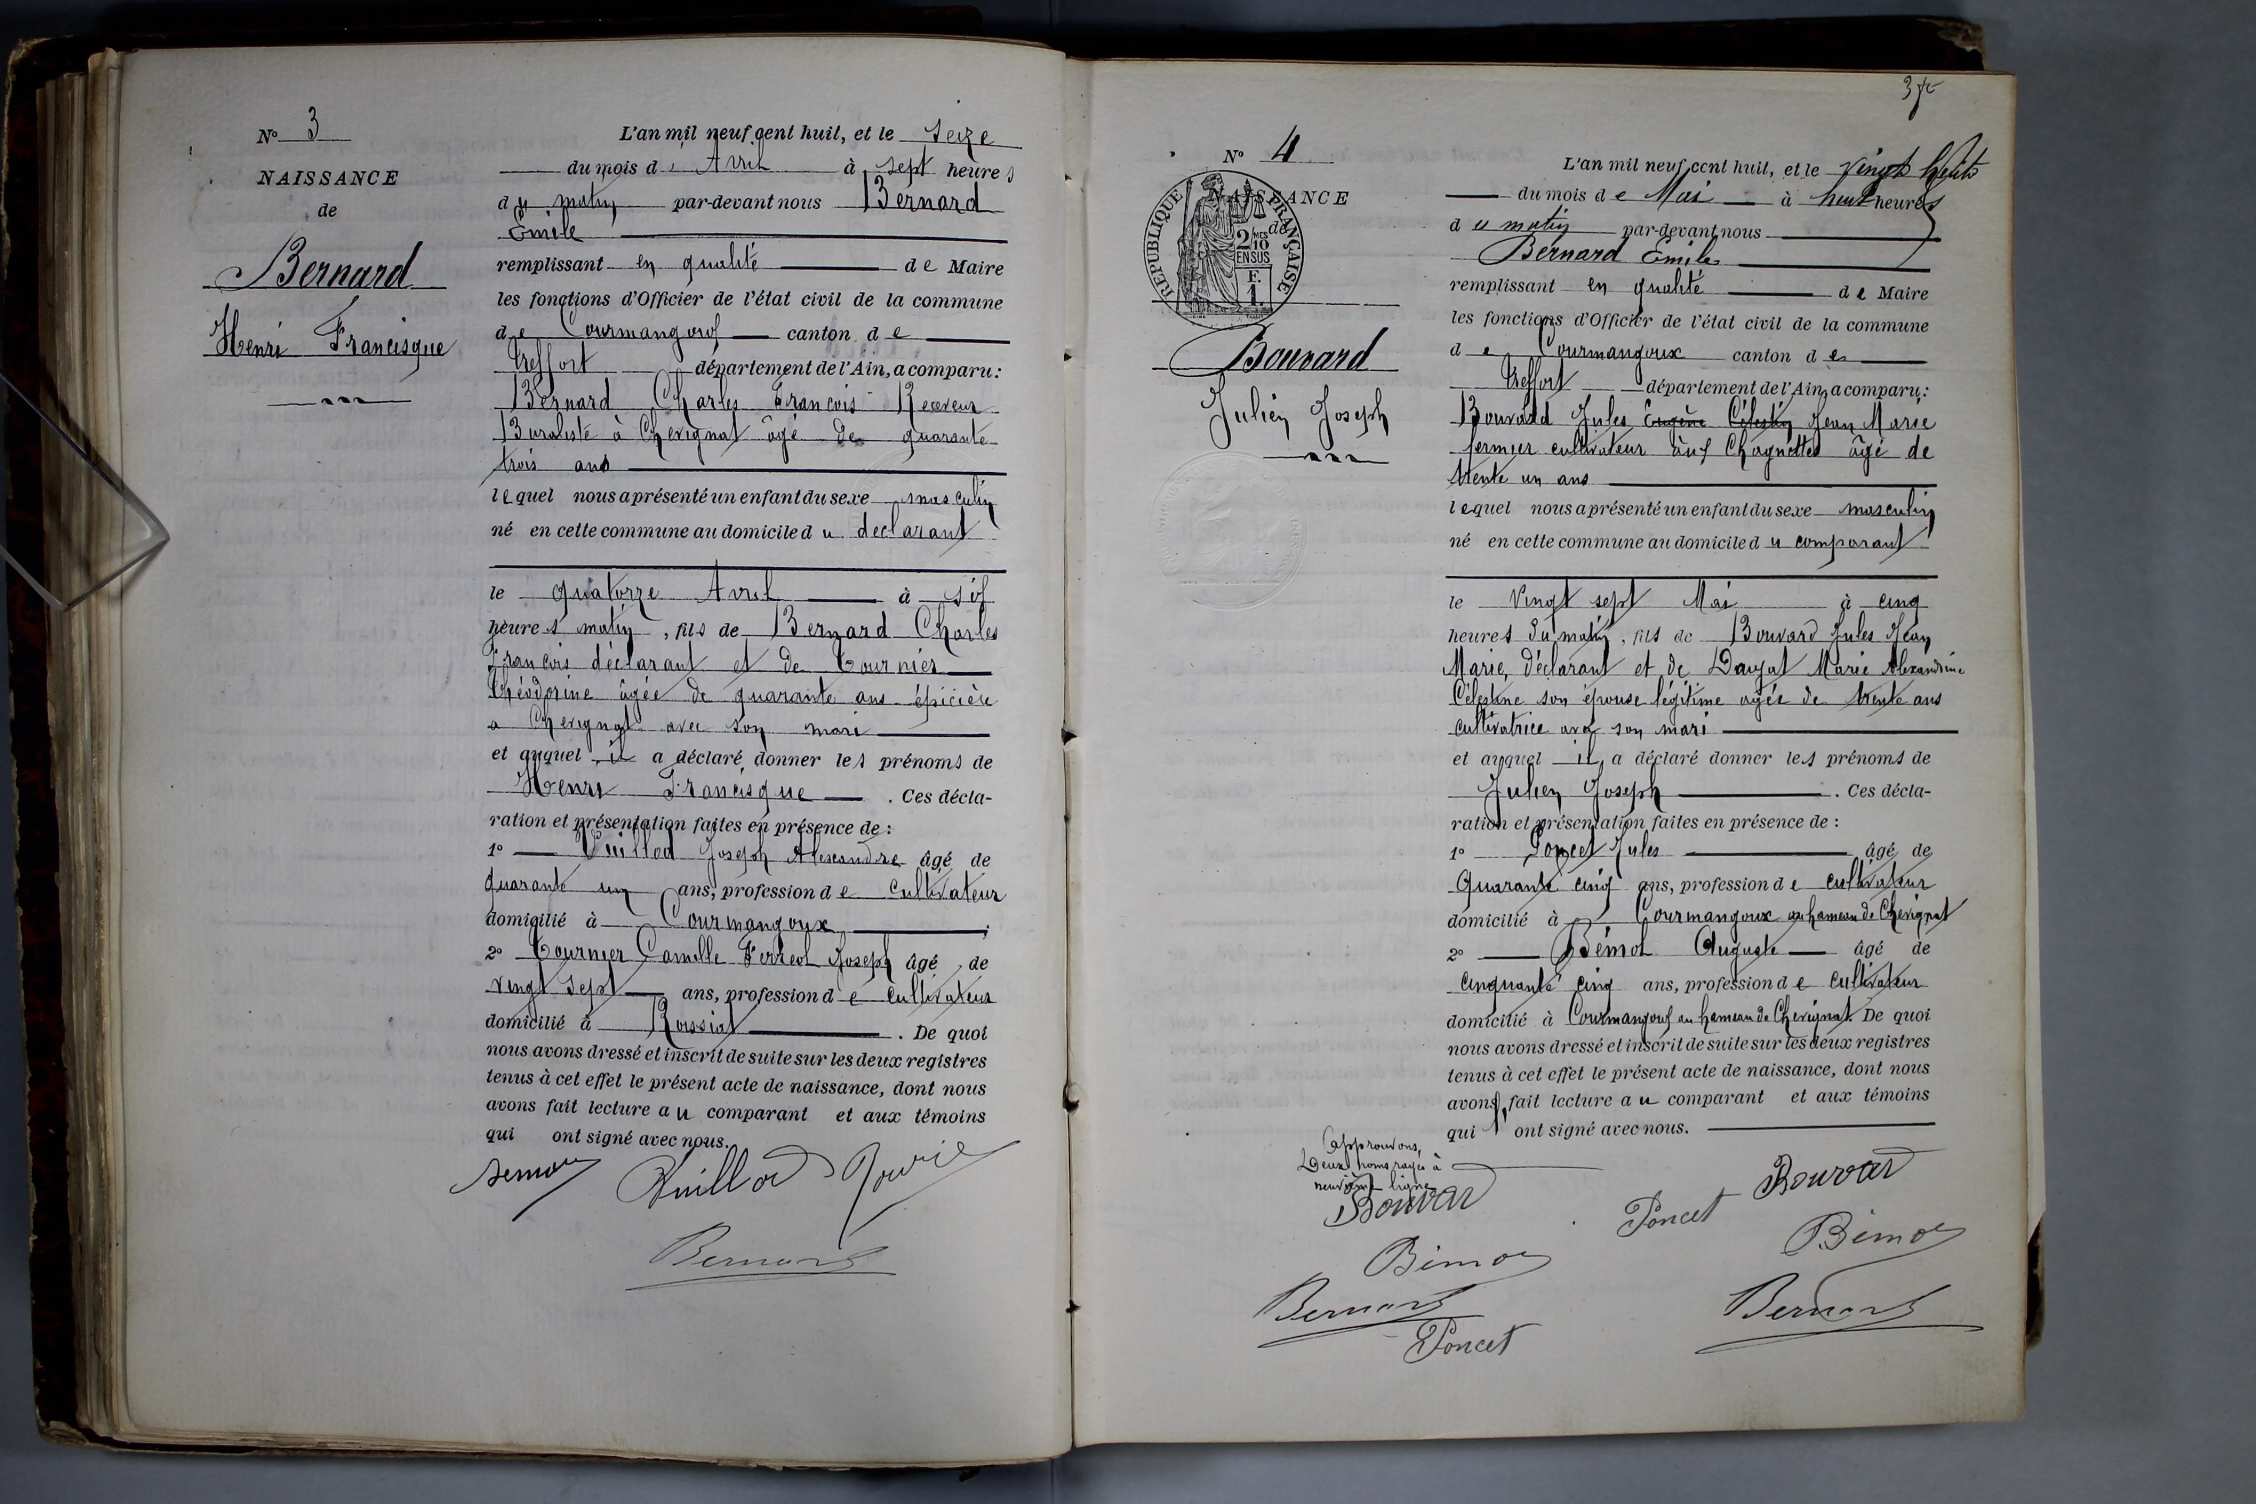 N° 3
NAISSANCE
de
Bernard
Henri Francisque
L'an mil neuf cent huit, et le seize
du mois d' Avril à sept heures
du matin par-devant nous Bernard
Emile
remplissant en qualité de Maire
les fonctions d'Officier de l'état civil de la commune
de Courmangoux canton de
Treffort département de l'Ain, a comparu :
Bernard Charles François Receveur
Buraliste à Chevignat âgé de quarante
trois ans
lequel nous a présenté un enfant du sexe masculin
né en cette commune au domicile du déclarant
le quatorze Avril à six
heures matin, fils de Bernard Charles
François déclarant et de Tournier
Théodorine âgée de quarante ans épicière
a Chevignat avec son mari
et auquel il a déclaré donner les prénoms de
Henri Francisque . Ces décla-
ration et présentation faites en présence de :
1° Vuillod Joseph Alexandre âgé de
quarante un ans, profession de cultivateur
domicilié à Courmangoux ;
2° Tournier Camille Ferreol Joseph âgé de
vingt sept ans, profession de cultivateur
domicilié à Roissiat . De quoi
nous avons dressé et inscrit de suite sur les deux registres
tenus à cet effet le présent acte de naissance, dont nous
avons fait lecture au comparant et aux témoins
qui ont signé avec nous.
Vuillod
Bernard
37
N° 4
NAISSANCE
de
REPUBLIQUE FRANÇAISE
2/10 MES
EN SUS
F.
1.
Bouvard
Julien Joseph
L'an mil neuf cent huit, et le vingt huit
du mois de Mai à huit heures
du matin par-devant nous
Bernard Emile
remplissant en qualité de Maire
les fonctions d'Officier de l'état civil de la commune
de Courmangoux canton de
Treffort département de l'Ain, a comparu :
Bouvard Jules Eugène Célestin Jean Marie
fermier cultivateur aux Chagnettes âgé de
trente un ans
lequel nous a présenté un enfant du sexe masculin
né en cette commune au domicile du comparant
le vingt sept Mai à cinq
heures du matin, fils de Bouvard Jules Jean
Marie, déclarant et de Marie Alexandrine
Célestine son épouse légitime agée de trente ans
cultivatrice avec son mari
et auquel il a déclaré donner les prénoms de
Julien Joseph . Ces décla-
ration et présentation faites en présence de :
1° Poncet Jules âgé de
quarante cinq ans, profession de cultivateur
domicilié à Courmangoux au hameau de Chevignat
2° Bémol Auguste âgé de
cinquante cinq ans, profession de cultivateur
domicilié à Courmangoux au hameau de Chevignat. De quoi
nous avons dressé et inscrit de suite sur les deux registres
tenus à cet effet le présent acte de naissance, dont nous
avons fait lecture au comparant et aux témoins
qui ont signé avec nous.
Approuvons,
Deux noms rayés à
neuvième ligne
Bouvard
Bouvard
Poncet
Bémol
Bémol
Bernard
Bernard
Poncet